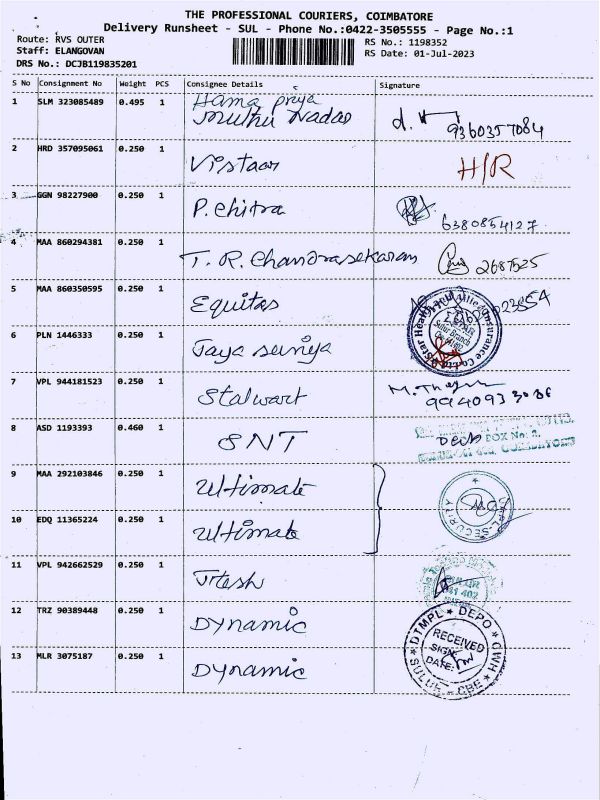 THE PROFESSIONAL COURIERS, COIMBATORE
Delivery Runsheet - SUL - Phone No.:0422-3505555 - Page No.:1
Route: RVS OUTER
Staff: ELANGOVAN
DRS No.: DCJB119835201
RS No.: 1198352
RS Date: 01-Jul-2023
S No Consignment No Weight PCS Consignee Details Signature
1 SLM 323085489 0.495 1 Hama priya
muthu Nadas
9360357084
2 HRD 357095061 0.250 1 Vistaar H/R
3 GGN 98227900 0.250 1 P. Chitra 6380854127
4 MAA 860294381 0.250 1 T. R. Chandrasekaran 2687525
5 MAA 860350595 0.250 1 Equitas
Star Health and Allied Insurance Co
Sulur Branch
6 PLN 1446333 0.250 1 Jaya suriya
7 VPL 944181523 0.250 1 Stalwart
8 ASD 1193393 0.460 1 SNT
BOX No: 2,
9 MAA 292103846 0.250 1 Ultimate
10 EDQ 11365224 0.250 1 Ultimate
11 VPL 942662529 0.250 1 Jtesh
12 TRZ 90389448 0.250 1 Dynamic
DTMPL ★ DEPO ★ CWH
RECEIVED
SIGN:
DATE:
SULUR - CBE
13 MLR 3075187 0.250 1 Dynamic